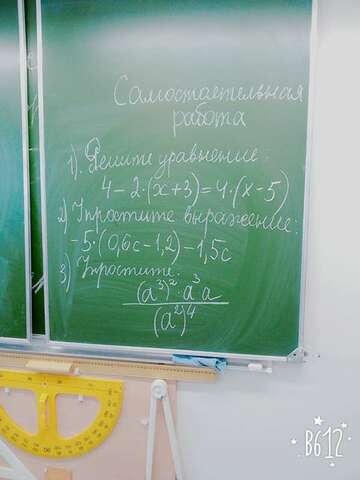 Самостоятельная
работа
1). Решите уравнение:
4-2·(x+3)=4·(x-5)
2) Упростите выражение:
-5·(0,6c-1,2)-1,5c
3) Упростите:
(a³)²·a³a
(a²)⁴
B612